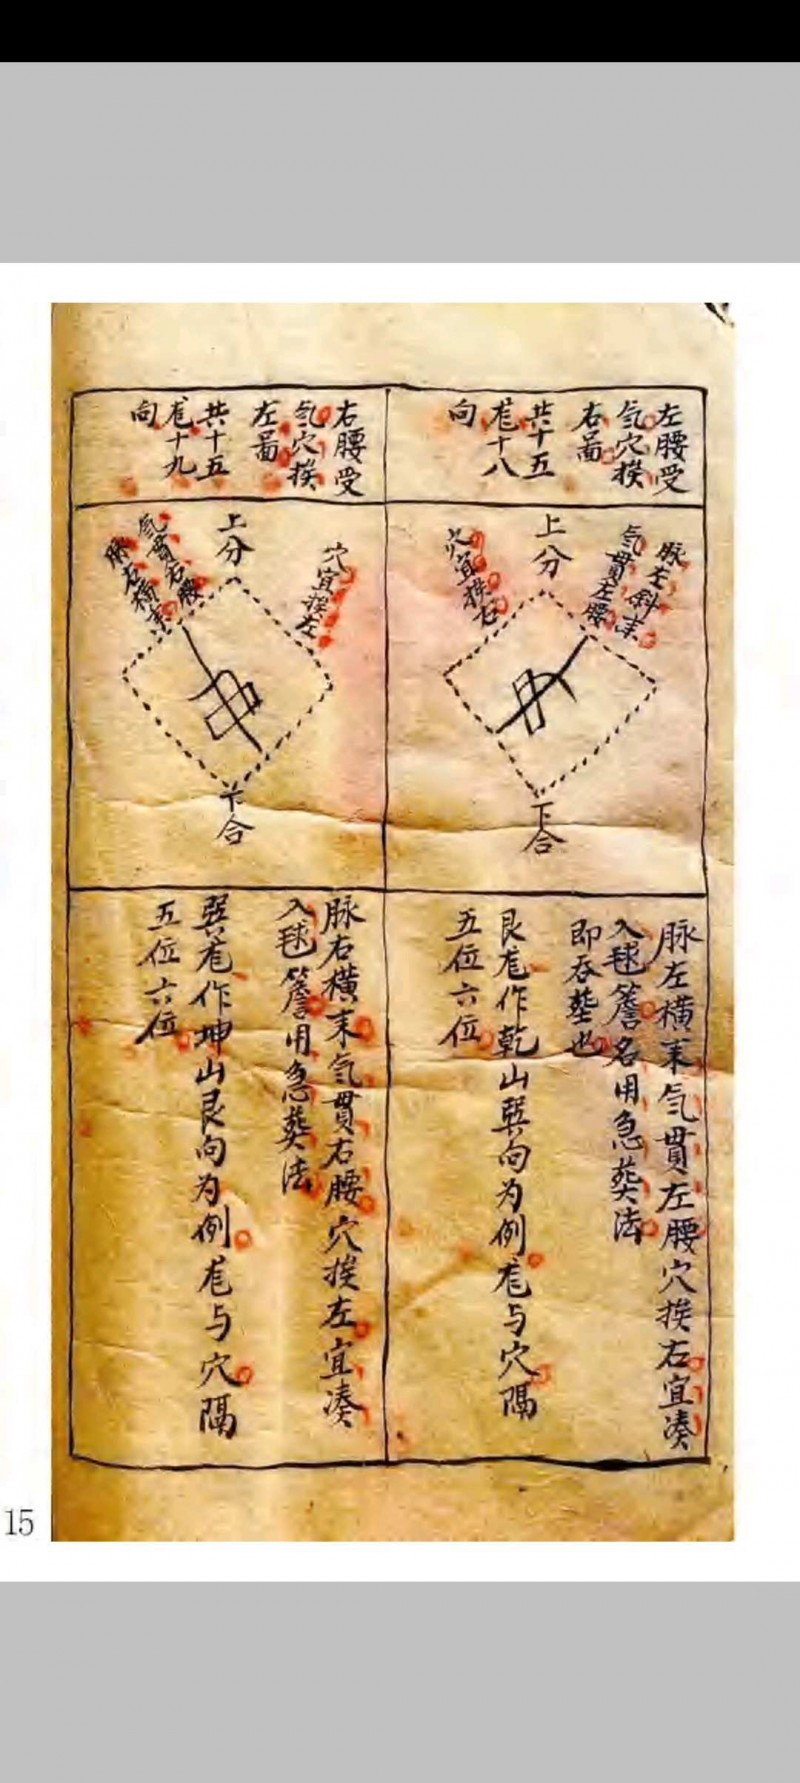 左腰受
氣穴挨
右啚
共十五
龙十八
向
脉左斜来
氣貫左腰
上分
穴宜挨右
下合
脉左橫来氣貫左腰穴挨右宜凑
入毬簷名用急葬法
即吞塟也
艮龙作乾山巽向为例龙与穴隔
五位六位
右腰受
氣穴挨
左啚
共十五
龙十九
向
穴宜挨左
上分
氣貫右腰
脉右橫来
下合
脉右橫来氣貫右腰穴挨左宜凑
入毬簷用急葬法
巽龙作坤山艮向为例龙与穴隔
五位六位
15